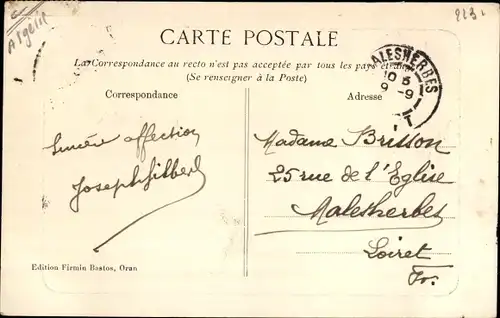 Algérie
CARTE POSTALE
La Correspondance au recto n'est pas acceptée par tous les pays étrangers
(Se renseigner à la Poste)
Correspondance
Adresse
MALESHERBES
9 -9
Sincère affection
Joseph Gilbert
Madame Brisson
25 rue de l'Eglise
Malesherbes
Loiret
Fr.
Edition Firmin Bastos, Oran